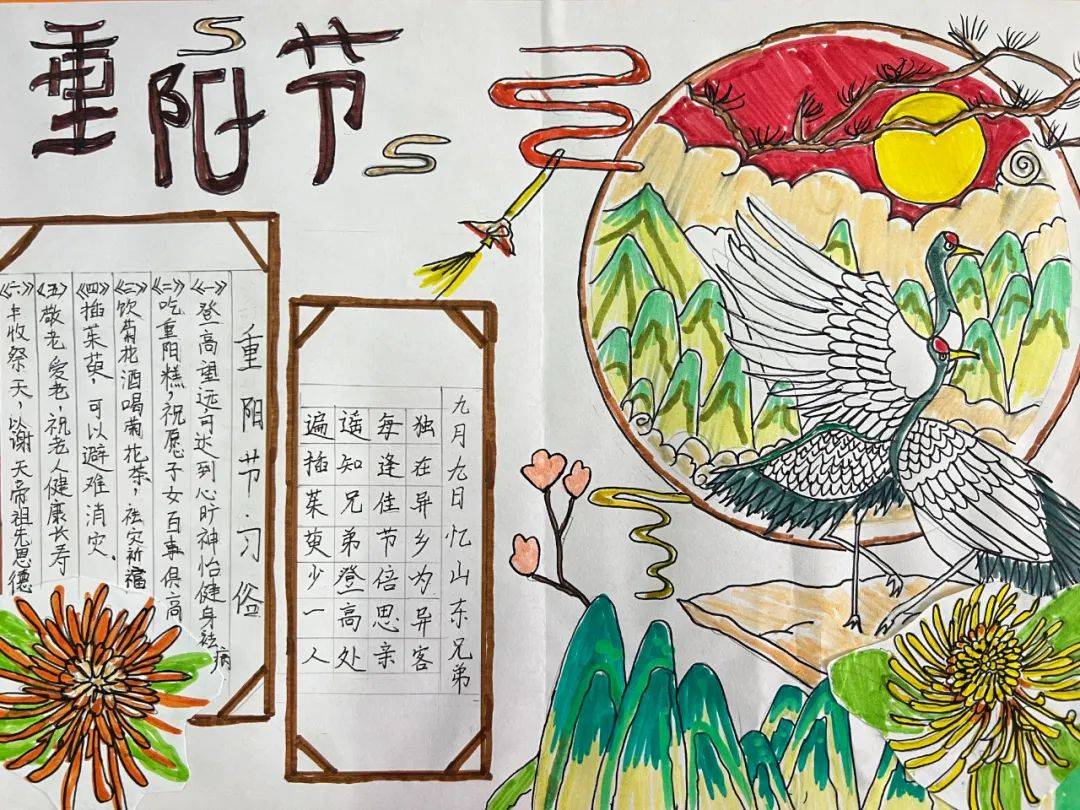 重阳节
重阳节·习俗
《一》登高望远,可达到心旷神怡健身祛病
《二》吃重阳糕,祝愿子女百事俱高
《三》饮菊花酒喝菊花茶,祛灾祈福
《四》插茱萸,可以避难消灾.
《五》敬老爱老,祝老人健康长寿
《六》丰收祭天,以谢天帝祖先恩德
九月九日忆山东兄弟
独在异乡为异客
每逢佳节倍思亲
遥知兄弟登高处
遍插茱萸少一人